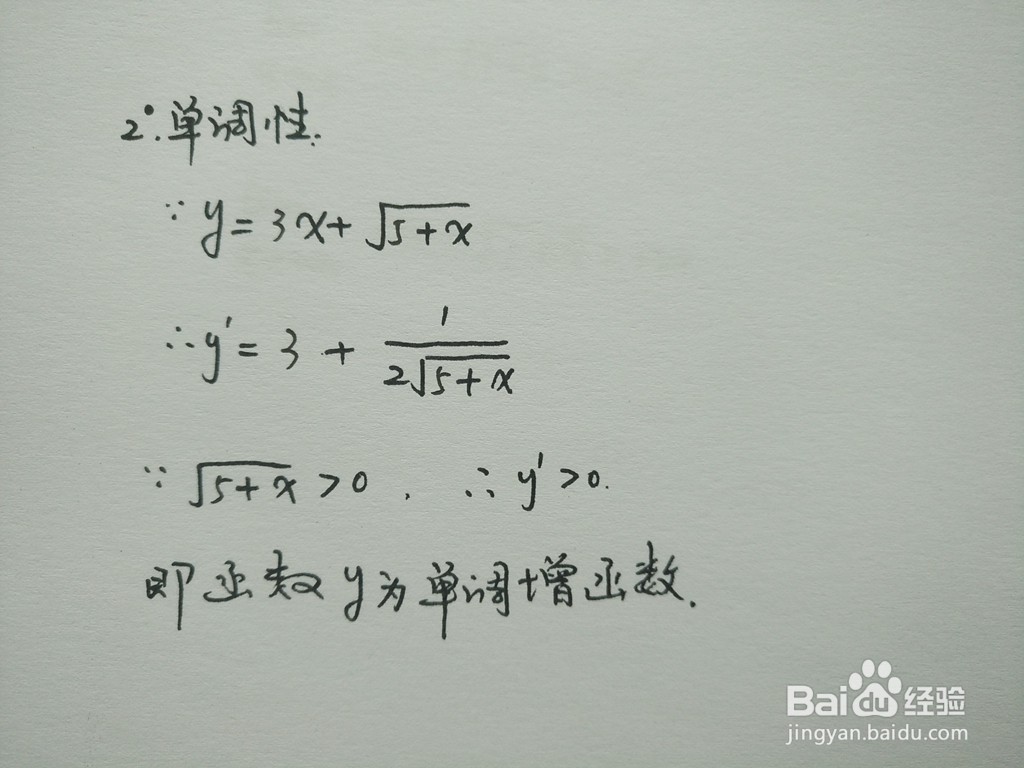 2°.单调性.
∵ y = 3x + √(5+x)
∴ y' = 3 + 1/(2√(5+x))
∵ √(5+x) > 0 , ∴ y' > 0.
即函数 y 为单调增函数.
Bai du 经验
jingyan.baidu.com